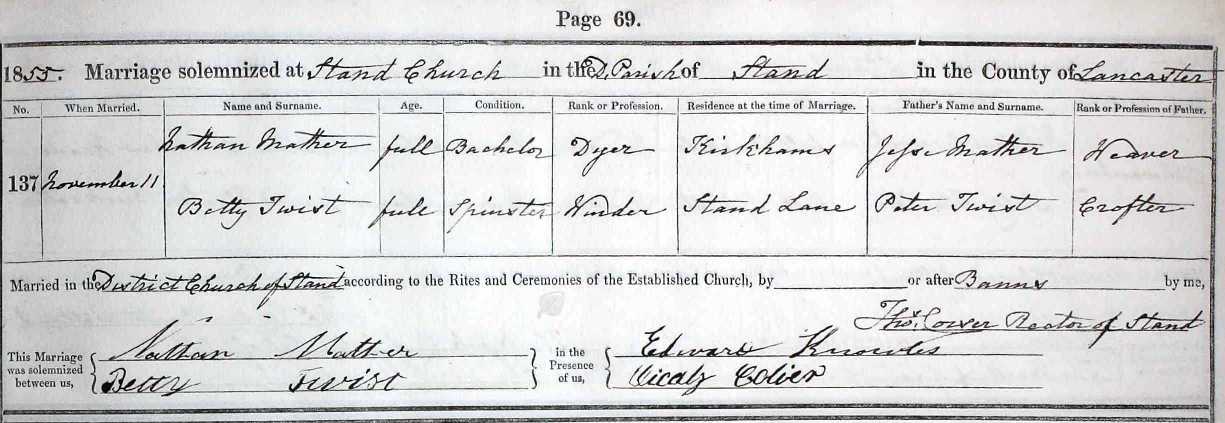 Page 69.
1855. Marriage solemnized at Stand Church in the D. Parish of Stand in the County of Lancaster
No. When Married. Name and Surname. Age. Condition. Rank or Profession. Residence at the time of Marriage. Father's Name and Surname. Rank or Profession of Father.
Nathan Mather full Bachelor Dyer Kirkhams Jesse Mather Weaver
137 November 11
Betty Twist full Spinster Winder Stand Lane Peter Twist Crofter
Married in the District Church of Stand according to the Rites and Ceremonies of the Established Church, by or after Banns by me,
Thos. Rector of Stand
This Marriage was solemnized between us, Nathan Mather in the Presence of us, Edward Knowles
Betty Twist